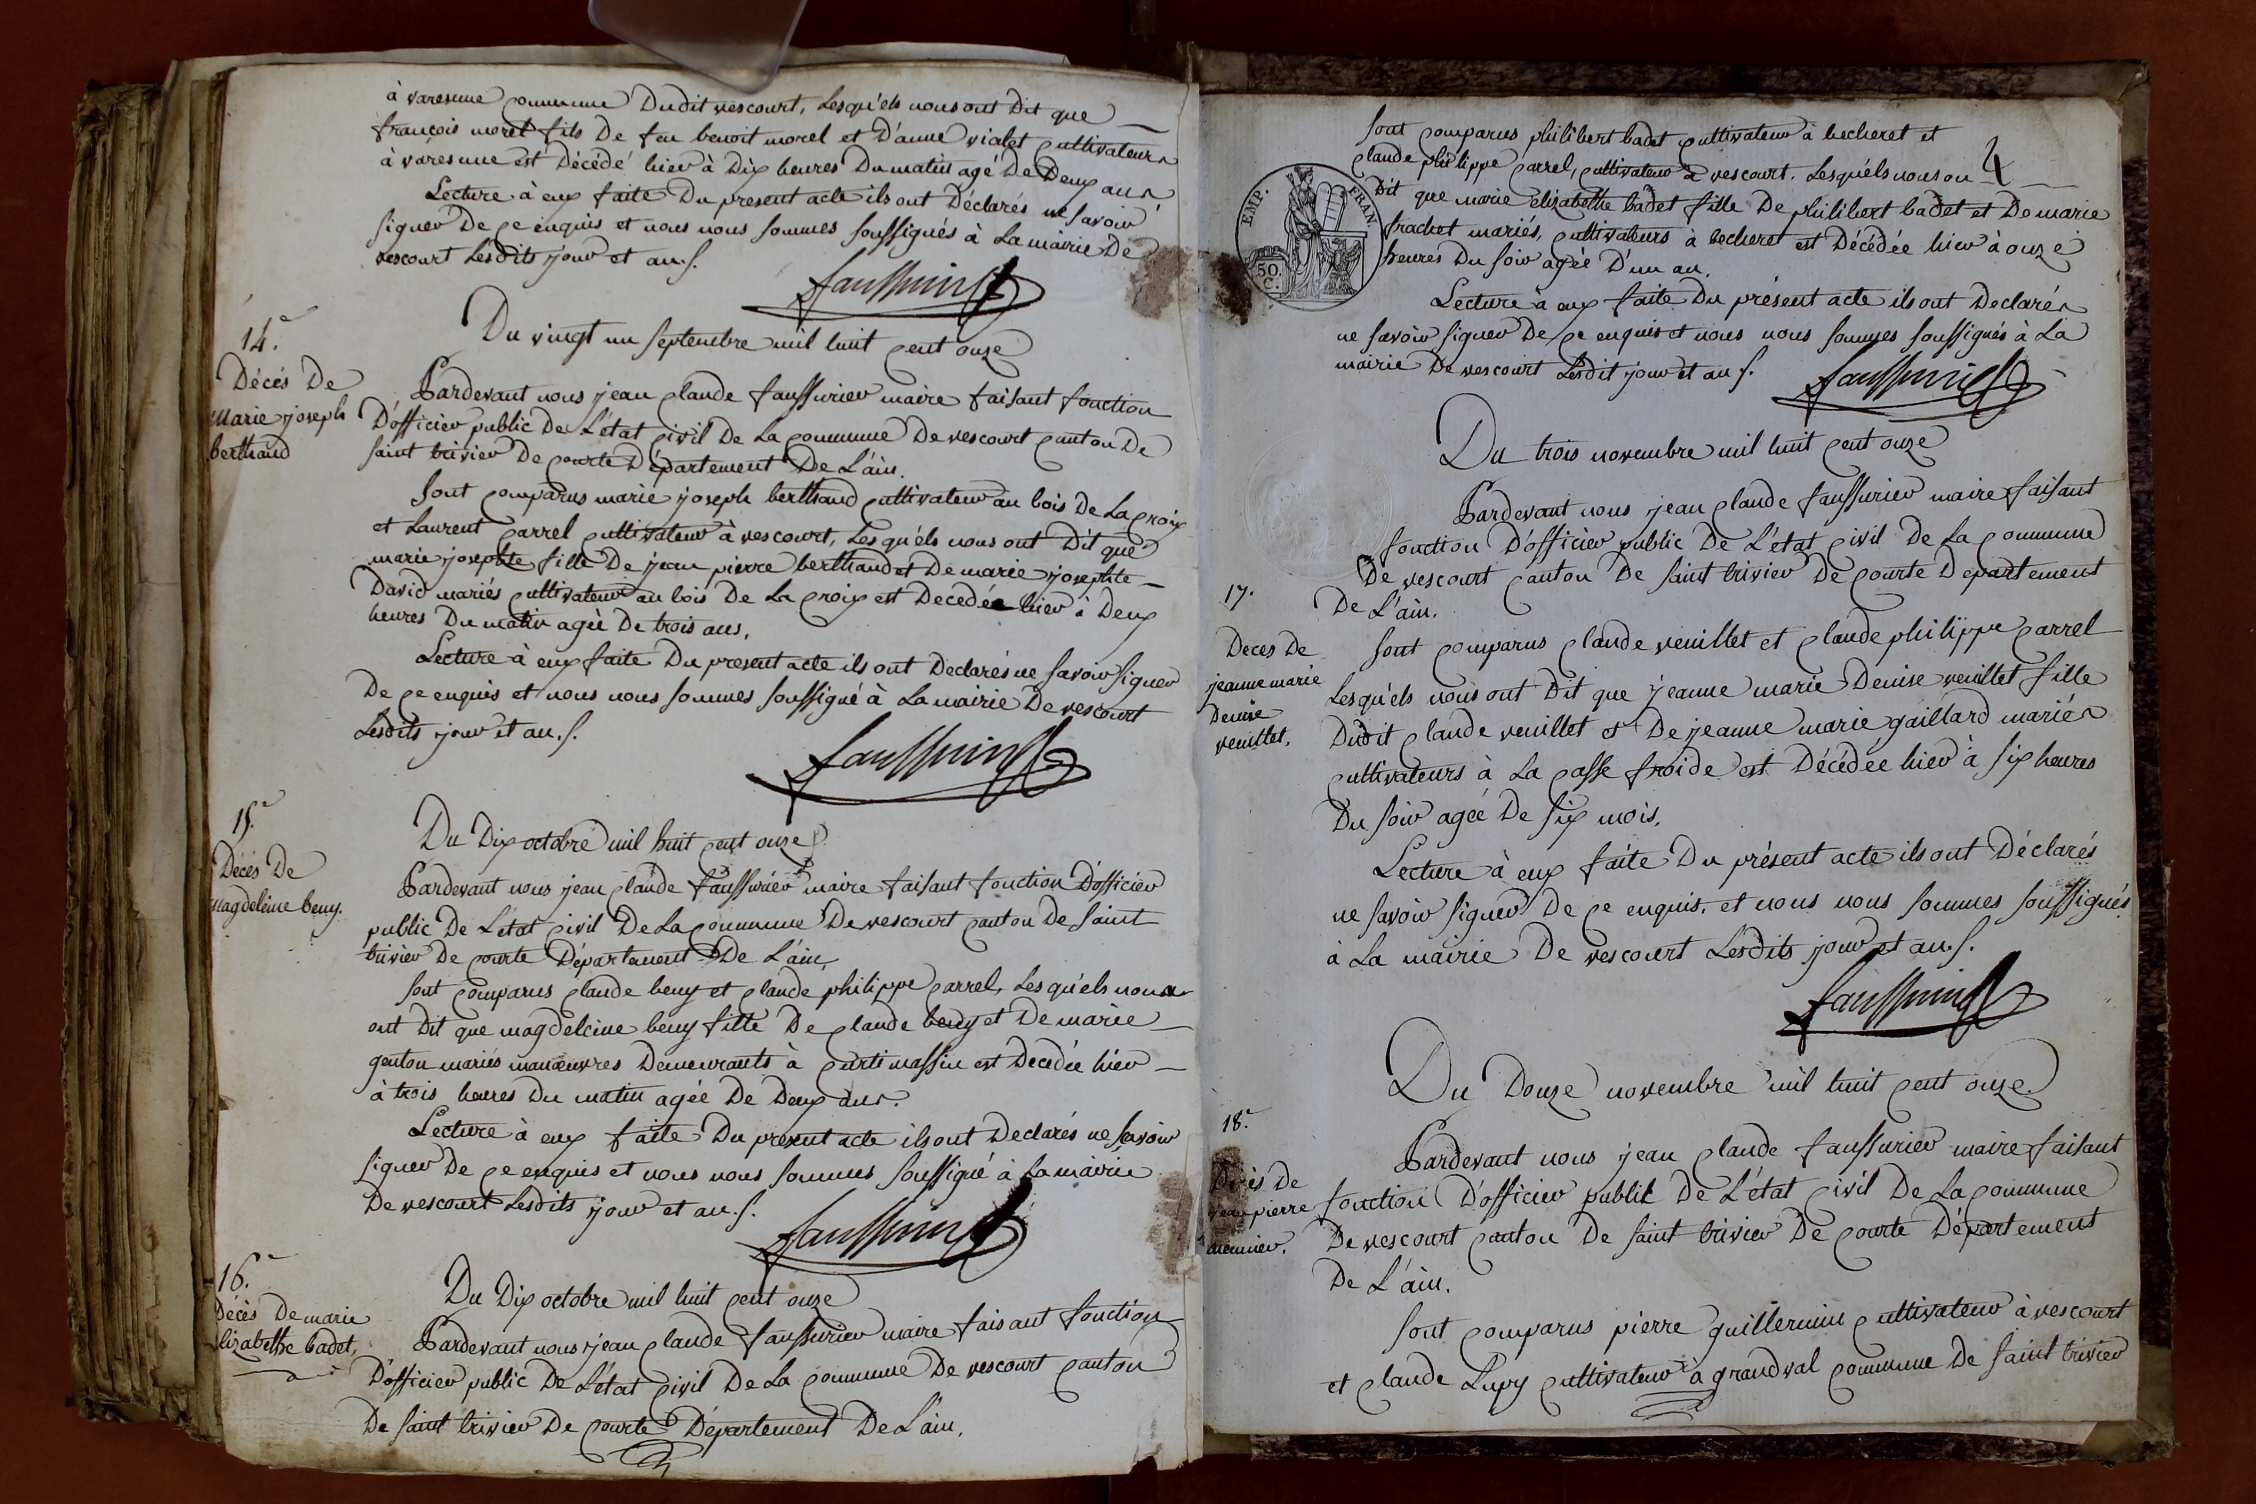 à varesnne commune Dudit vescourt, Lesquéls nous ont Dit que
françois morel fils De feu benoit morel et D'anne vialet cultivateurs
à varesnne est Décédé hier à Dix heures Du matin agé De Deux ans
Lecture à eux faite Du present acte ils ont Déclarés ne savoir
signer De ce enquis et nous nous sommes soussignés à La mairie De
vescourt Lesdits jour et an.
14.e
Du vingt un septembre mil huit cent onze
Décés De
Marie joseph
berthand
Pardevant nous jean claude faussurier maire faisant fonction
D'officier public De L'état civil De La commune De vescourt canton De
saint trivier De courte Département De L'ain.
Sont comparus marie joseph berthaud cultivateur au bois De La croix
et Laurent carrel cultivateur à vescourt, Lesquéls nous ont Dit que
marie josephte fille De jean pierre berthaud et De marie josephte
David mariés cultivateur au bois De La croix est Decedée hier à Deux
heures Du matin agée De trois ans,
Lecture à eux faite Du present acte ils ont Declarés ne savoir signer
De ce enquis et nous nous sommes soussigné à La mairie De vescourt
Lesdits jour et an.
15.e
Du Dix octobre mil huit cent onze
Décès De
magdeleine beny.
Pardevant nous jean claude faussurier maire faisant fonction D'officier
public De L'état civil De La commune De vescourt canton De saint
trivier De courte Département De L'ain,
Sont comparus claude beny et claude philippe carrel, Lesquéls nous
ont Dit que magdeleine beny fille De claude beny et De marie
genton mariés manœuvres Demeurants à curtimassin est Decedée hier
à trois heures Du matin agée De Deux ans.
Lecture à eux faite Du present acte ils ont Declarés ne savoir
signer De ce enquis et nous nous sommes soussigné à La mairie
De vescourt Lesdits jour et an.
16.e
Du Dix octobre mil huit cent onze
Décès De marie
Elizabethe badet,
Pardevant nous jean claude faussurier maire faisant fonction
D'officier public De L'état civil De La commune De vescourt canton
De saint trivier De courte Département De L'ain.
EMP. FRAN.
50.
C.
Sont comparus philibert badet cultivateur à becheret et
claude philippe carrel, cultivateur à vescourt. Lesquéls nous on
Dit que marie elizabethe badet fille De philibert badet et De marie
frachet mariés, cultivateurs à becheret est Décédée hier à onze
heures Du soir agée D'un an.
Lecture à eux faite Du présent acte ils ont Declarés
ne savoir signer De ce enquis et nous nous sommes soussignés à La
mairie De vescourt Lesdit jour et an.
Du trois novembre mil huit cent onze
Pardevant nous jean claude faussurier maire faisant
fonction D'officier public De L'état civil De La commune
De vescourt canton De saint trivier De courte Departement
De L'ain.
17.
Deces De
jeanne marie
Denise
veuillet.
Sont comparus claude veuillet et claude philippe carrel
Lesquéls nous ont Dit que jeanne marie Denise veuillet fille
Dudit claude veuillet et De jeanne marie gaillard mariés
cultivateurs à La casse froide est Décédée hier à six heures
Du soir agée De six mois.
Lecture à eux faite Du présent acte ils ont Déclarés
ne savoir signer De ce enquis. et nous nous sommes soussignés
à La mairie De vescourt Lesdits jour et an.
Du Douze novembre mil huit cent onze.
18.e
Décès De
jean pierre
meunier.
Pardevant nous jean claude faussurier maire faisant
fonction D'officier public De L'état civil De La commune
De vescourt canton De saint trivier De courte Département
De L'ain.
Sont comparus pierre guillermin cultivateur à vescourt
et claude Lupy cultivateur à grandval commune De saint trivier